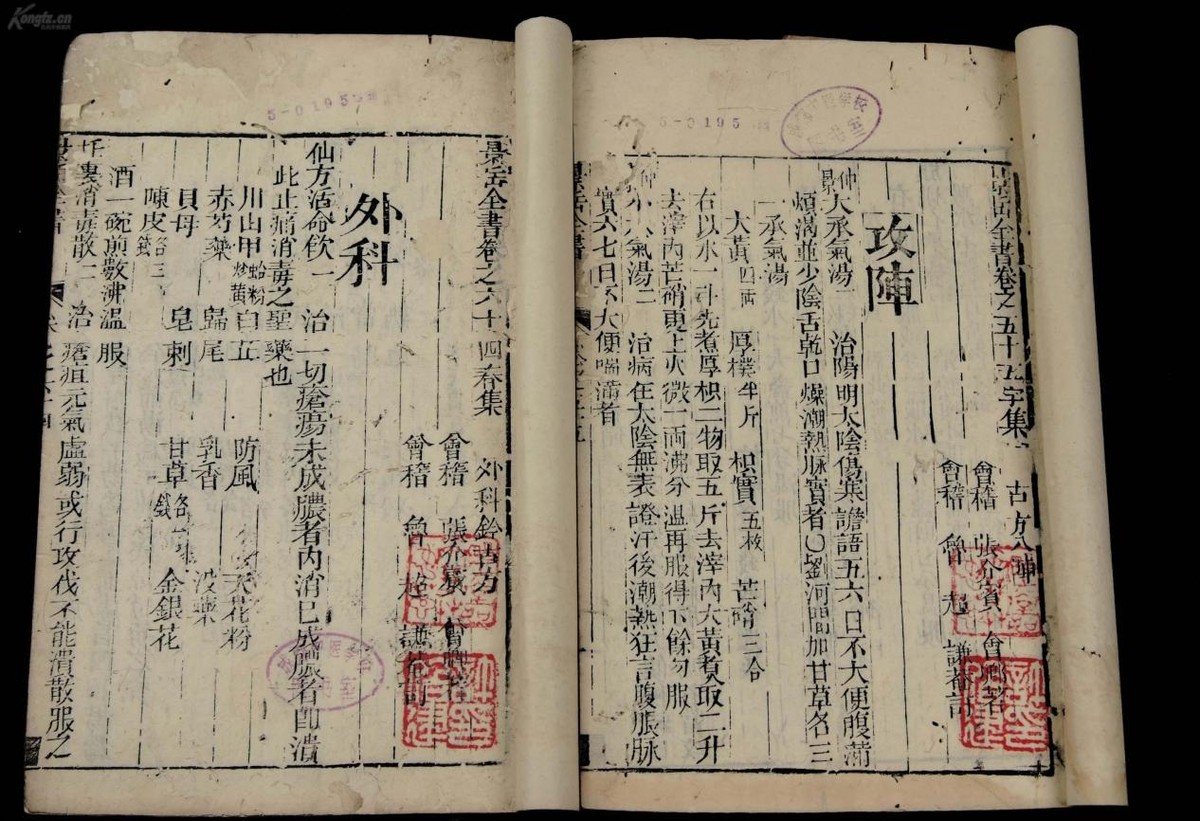 Kongfz.cn
5-0195
景岳全書卷之五十五字集 古方八陣
會稽 張介賓 會卿著
會稽 魯 超 謙菴訂
攻陣
仲景大承氣湯一 治陽明太陰傷寒譫語五六日不大便腹滿
煩渴並少陰舌乾口燥潮熱脉實者○劉河間加甘草名三
一承氣湯
大黃四両 厚樸半斤 枳實五枚 芒硝三合
右以水一斗先煮厚枳二物取五斤去滓內大黃煮取二升
去滓內芒硝更上火微一両沸分溫再服得下餘勿服
仲 小承氣湯二 治病在太陰無表證汗後潮熱狂言腹脹脉
實六七日不大便喘滿者
5-0195
景岳全書卷之六十四春集 外科鈐古方
會稽 張介賓 會卿著
會稽 魯 超 謙菴訂
外科
仙方活命飲一 治一切瘡瘍未成膿者內消已成膿者即潰
此止痛消毒之聖藥也
川山甲蛤粉炒黃 白芷 防風 天花粉
赤芍藥 歸尾 乳香 沒藥
貝母 皂刺 甘草各一錢 金銀花
陳皮各三錢
酒一碗煎數沸溫服
托裏消毒散二 治瘡疽元氣虛弱或行攻伐不能潰散服之